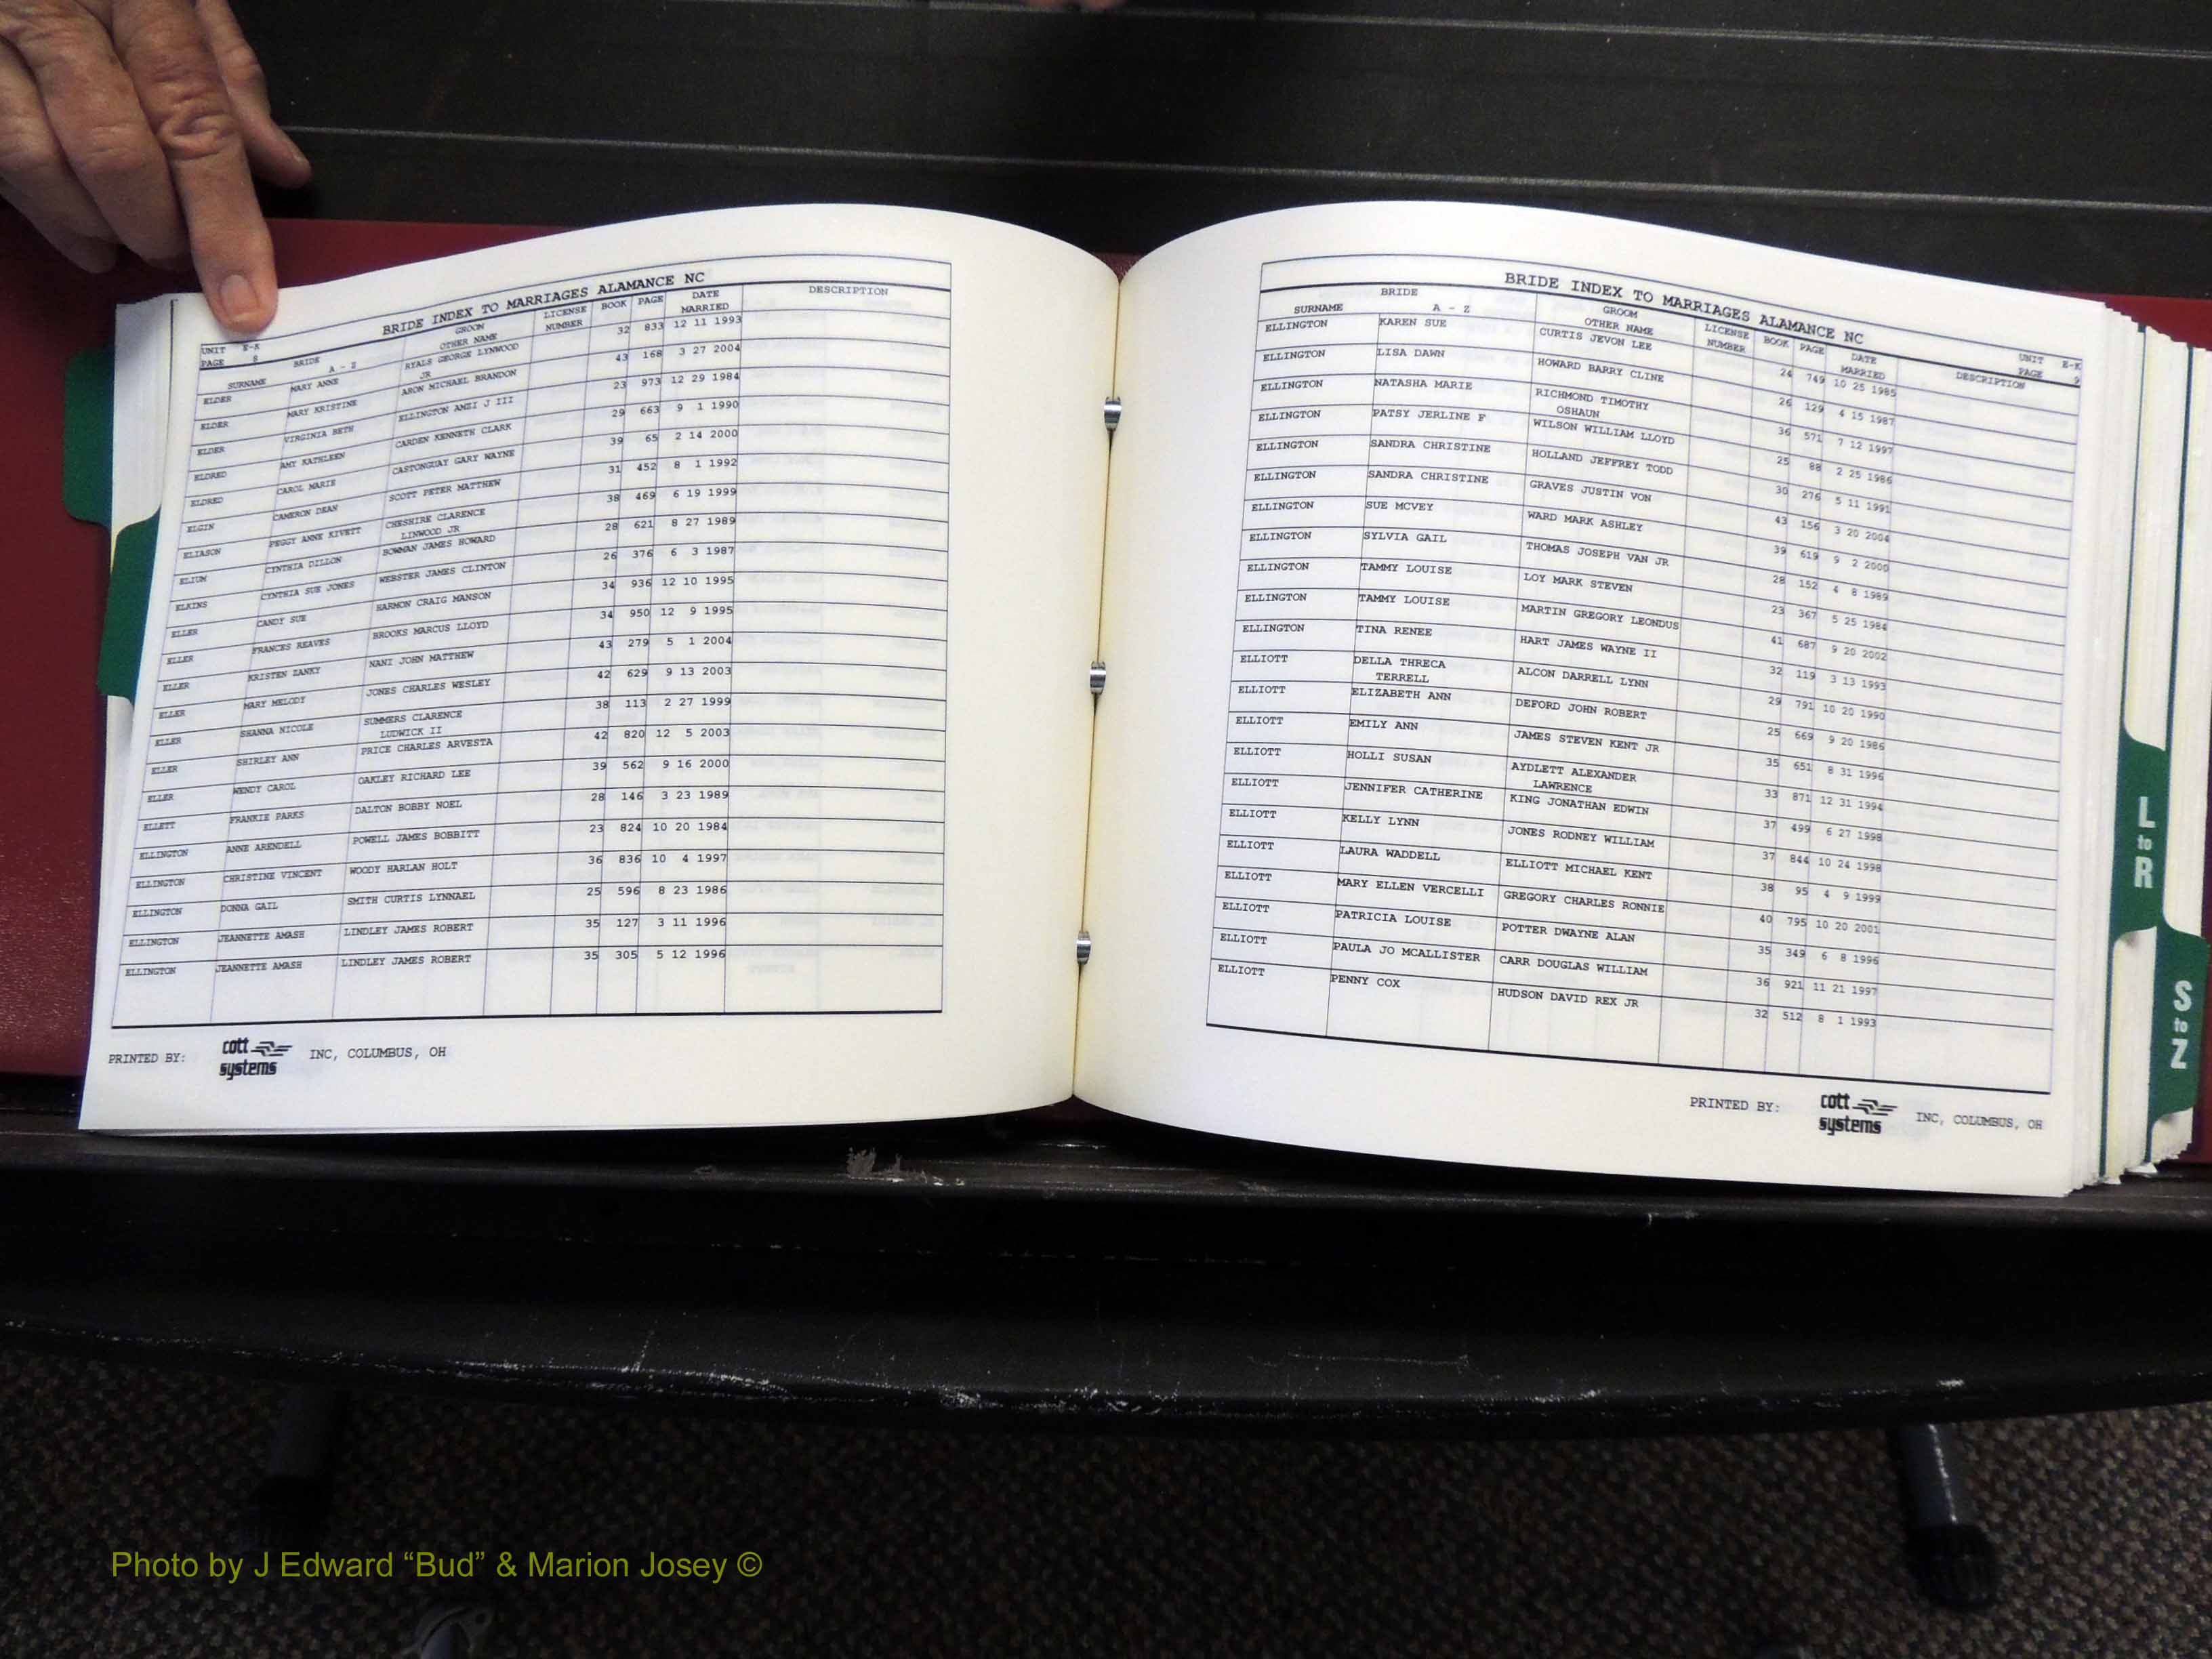 BRIDE INDEX TO MARRIAGES ALAMANCE NC
UNIT E-K
PAGE 8
BRIDE GROOM LICENSE NUMBER BOOK PAGE DATE MARRIED DESCRIPTION
SURNAME A - Z OTHER NAME
ELDER MARY ANNE RYALS GEORGE LYNWOOD JR 32 833 12 11 1993
ELDER MARY KRISTINE ARON MICHAEL BRANDON 43 168 3 27 2004
ELDER VIRGINIA BETH ELLINGTON AMZI J III 23 973 12 29 1984
ELDRED AMY KATHLEEN CARDEN KENNETH CLARK 29 663 9 1 1990
ELDRED CAROL MARIE CASTONGUAY GARY WAYNE 39 65 2 14 2000
ELGIN CAMERON DEAN SCOTT PETER MATTHEW 31 452 8 1 1992
ELIASON PEGGY ANNE KIVETT CHESHIRE CLARENCE LINWOOD JR 38 469 6 19 1999
ELIUM CYNTHIA DILLON BOWMAN JAMES HOWARD 28 621 8 27 1989
ELKINS CYNTHIA SUE JONES WEBSTER JAMES CLINTON 26 376 6 3 1987
ELLER CANDY SUE HARMON CRAIG MANSON 34 936 12 10 1995
ELLER FRANCES REAVES BROOKS MARCUS LLOYD 34 950 12 9 1995
ELLER KRISTEN ZANKY NANI JOHN MATTHEW 43 279 5 1 2004
ELLER MARY MELODY JONES CHARLES WESLEY 42 629 9 13 2003
ELLER SHANNA NICOLE SUMMERS CLARENCE LUDWICK II 38 113 2 27 1999
ELLER SHIRLEY ANN PRICE CHARLES ARVESTA 42 820 12 5 2003
ELLER WENDY CAROL OAKLEY RICHARD LEE 39 562 9 16 2000
ELLETT FRANKIE PARKS DALTON BOBBY NOEL 28 146 3 23 1989
ELLINGTON ANNE ARENDELL POWELL JAMES BOBBITT 23 824 10 20 1984
ELLINGTON CHRISTINE VINCENT WOODY HARLAN HOLT 36 836 10 4 1997
ELLINGTON DONNA GAIL SMITH CURTIS LYNNAEL 25 596 8 23 1986
ELLINGTON JEANNETTE AMASH LINDLEY JAMES ROBERT 35 127 3 11 1996
ELLINGTON JEANNETTE AMASH LINDLEY JAMES ROBERT 35 305 5 12 1996
PRINTED BY: cott systems INC, COLUMBUS, OH
BRIDE INDEX TO MARRIAGES ALAMANCE NC
UNIT E-K
PAGE 9
BRIDE GROOM LICENSE NUMBER BOOK PAGE DATE MARRIED DESCRIPTION
SURNAME A - Z OTHER NAME
ELLINGTON KAREN SUE CURTIS JEVON LEE 24 749 10 25 1985
ELLINGTON LISA DAWN HOWARD BARRY CLINE 26 129 4 15 1987
ELLINGTON NATASHA MARIE RICHMOND TIMOTHY OSHAUN 36 571 7 12 1997
ELLINGTON PATSY JERLINE F WILSON WILLIAM LLOYD 25 88 2 25 1986
ELLINGTON SANDRA CHRISTINE HOLLAND JEFFREY TODD 30 276 5 11 1991
ELLINGTON SANDRA CHRISTINE GRAVES JUSTIN VON 43 156 3 20 2004
ELLINGTON SUE MCVEY WARD MARK ASHLEY 39 619 9 2 2000
ELLINGTON SYLVIA GAIL THOMAS JOSEPH VAN JR 28 152 4 8 1989
ELLINGTON TAMMY LOUISE LOY MARK STEVEN 23 367 5 25 1984
ELLINGTON TAMMY LOUISE MARTIN GREGORY LEONDUS 41 687 9 20 2002
ELLINGTON TINA RENEE HART JAMES WAYNE II 32 119 3 13 1993
ELLIOTT DELLA THRECA TERRELL ALCON DARRELL LYNN 29 791 10 20 1990
ELLIOTT ELIZABETH ANN DEFORD JOHN ROBERT 25 669 9 20 1986
ELLIOTT EMILY ANN JAMES STEVEN KENT JR 35 651 8 31 1996
ELLIOTT HOLLI SUSAN AYDLETT ALEXANDER LAWRENCE 33 871 12 31 1994
ELLIOTT JENNIFER CATHERINE KING JONATHAN EDWIN 37 499 6 27 1998
ELLIOTT KELLY LYNN JONES RODNEY WILLIAM 37 844 10 24 1998
ELLIOTT LAURA WADDELL ELLIOTT MICHAEL KENT 38 95 4 9 1999
ELLIOTT MARY ELLEN VERCELLI GREGORY CHARLES RONNIE 40 795 10 20 2001
ELLIOTT PATRICIA LOUISE POTTER DWAYNE ALAN 35 349 6 8 1996
ELLIOTT PAULA JO MCALLISTER CARR DOUGLAS WILLIAM 36 921 11 21 1997
ELLIOTT PENNY COX HUDSON DAVID REX JR 32 512 8 1 1993
PRINTED BY: cott systems INC, COLUMBUS, OH
L to R
S to Z
Photo by J Edward “Bud” & Marion Josey ©